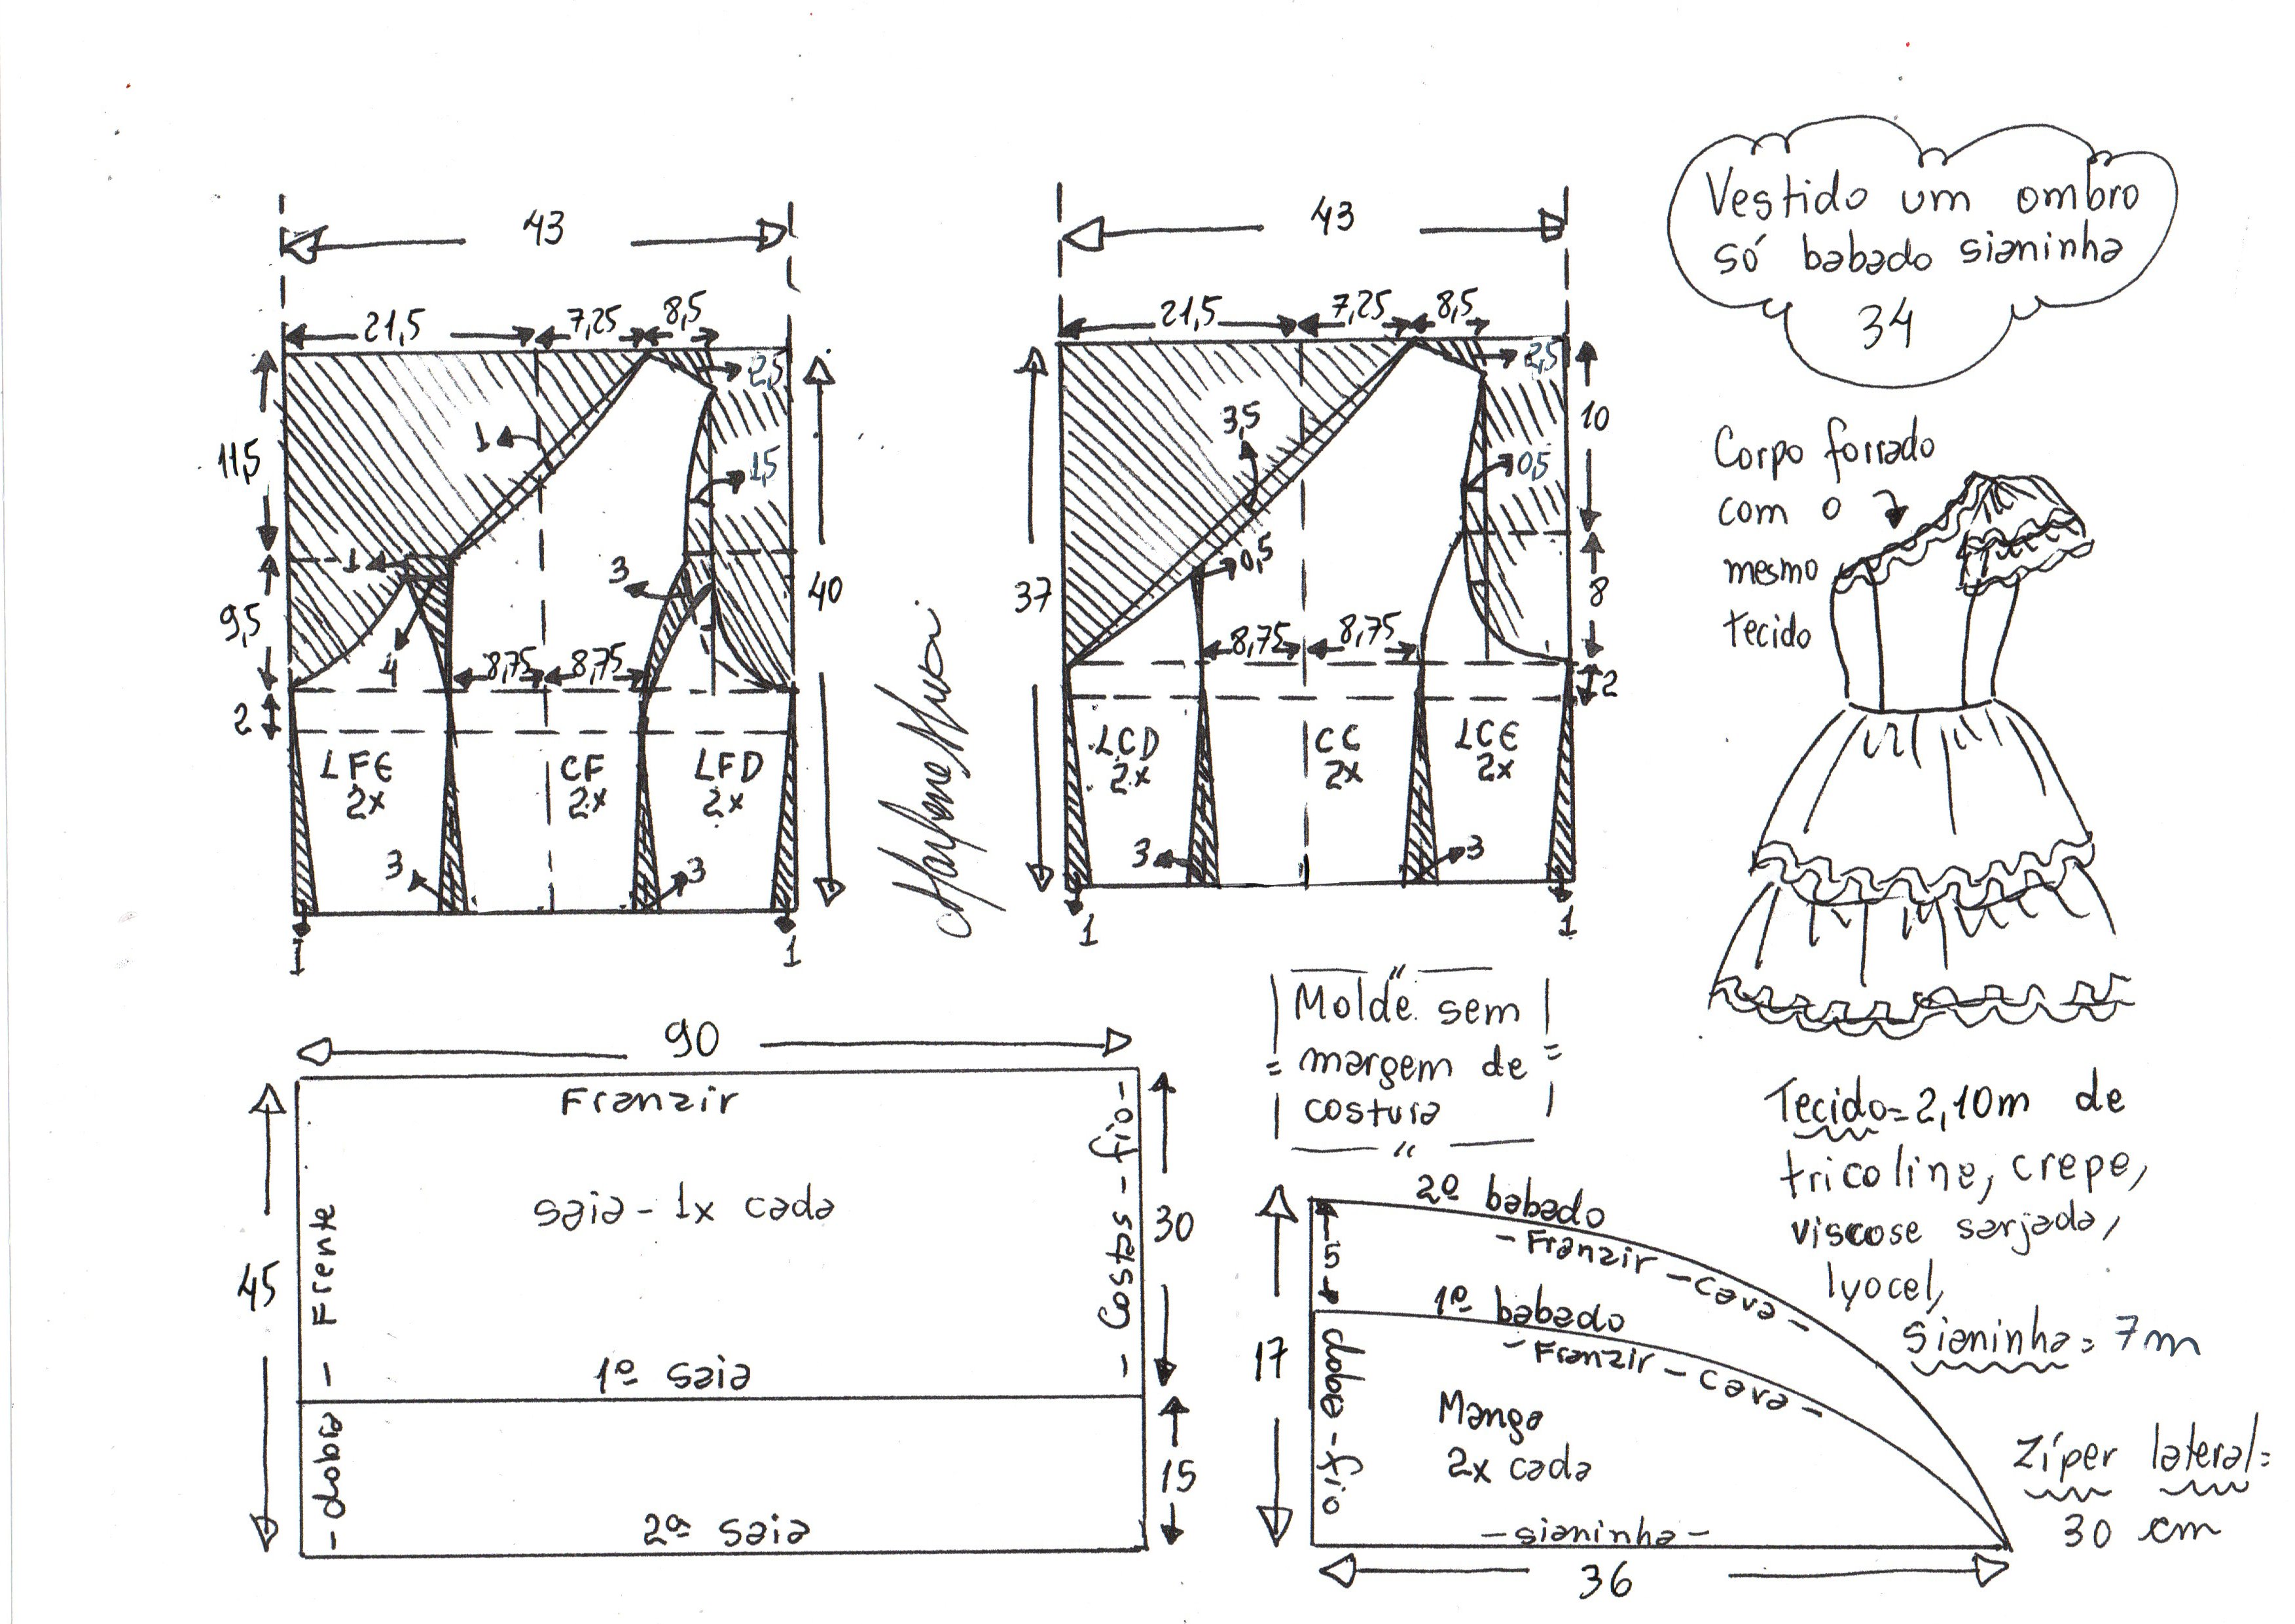 Vestido um ombro
só babado sianinha
34
43
21,5
7,25
8,5
2,5
11,5
1
1,5
1
3
40
9,5
4
8,75
8,75
2
LFE
2x
CF
2x
LFD
2x
3
3
1
1
43
21,5
7,25
8,5
2,5
10
3,5
0,5
0,5
37
8
8,75
8,75
2
LCD
2x
CC
2x
LCE
2x
3
3
1
1
Corpo forrado
com o
mesmo
tecido
Molde sem
margem de
costura
90
Franzir
saia - 1x cada
- dobra - Frente
- Costas - fio -
45
30
1ª saia
15
2ª saia
2º babado
- Franzir - cava -
5
1º babado
- Franzir - cava -
17
dobe - fio
Manga
2x cada
- sianinha -
36
Tecido = 2,10m de
tricoline, crepe,
viscose sarjada,
lyocel,
sianinha = 7m
Zíper lateral =
30 cm